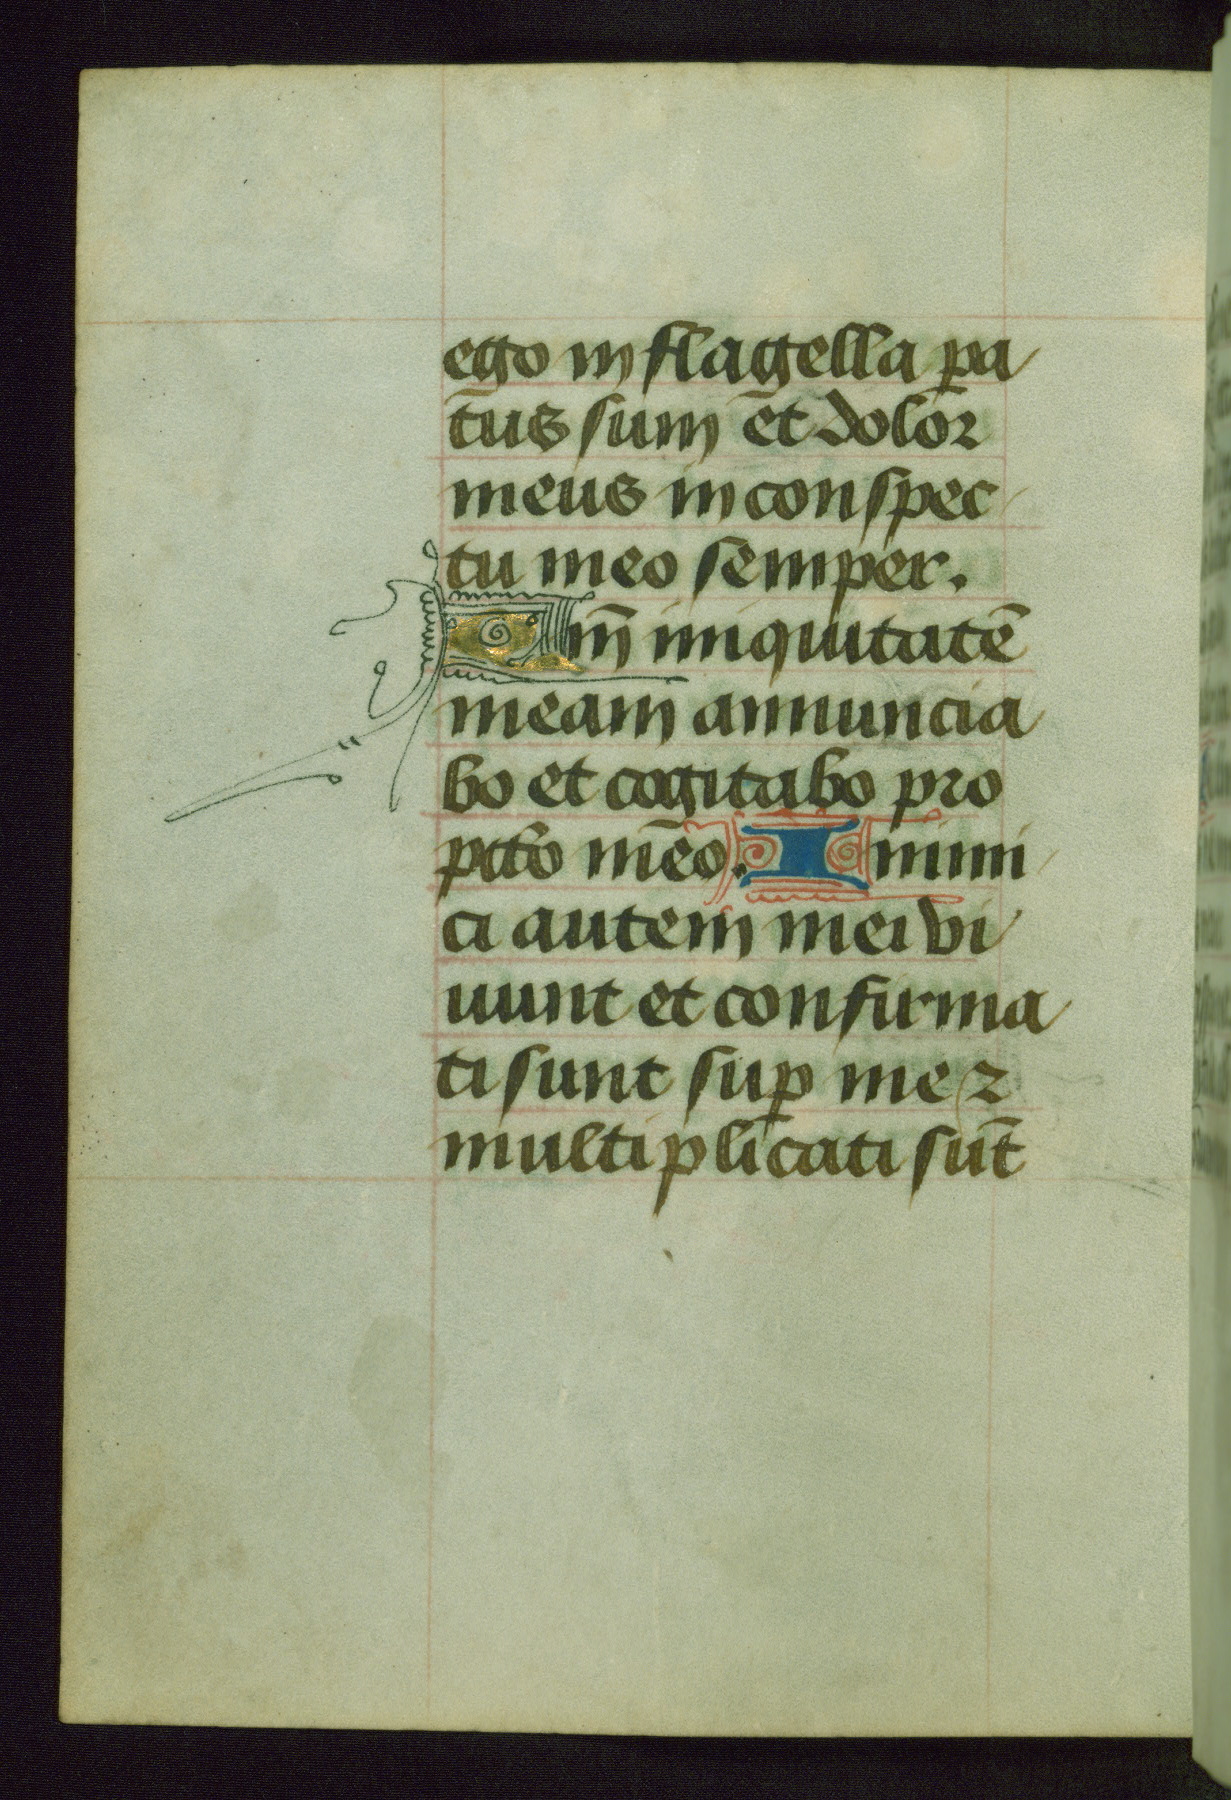 ego in flagella pa
ratus sum et dolor
meus in conspec
tu meo semper.
Qm̄ iniquitatē
meam annuncia
bo et cogitabo pro
pcc̄to mēo. Inimi
ci autem mei vi
uunt et confirma
ti sunt sup̄ me ⁊
multiplicati sūt